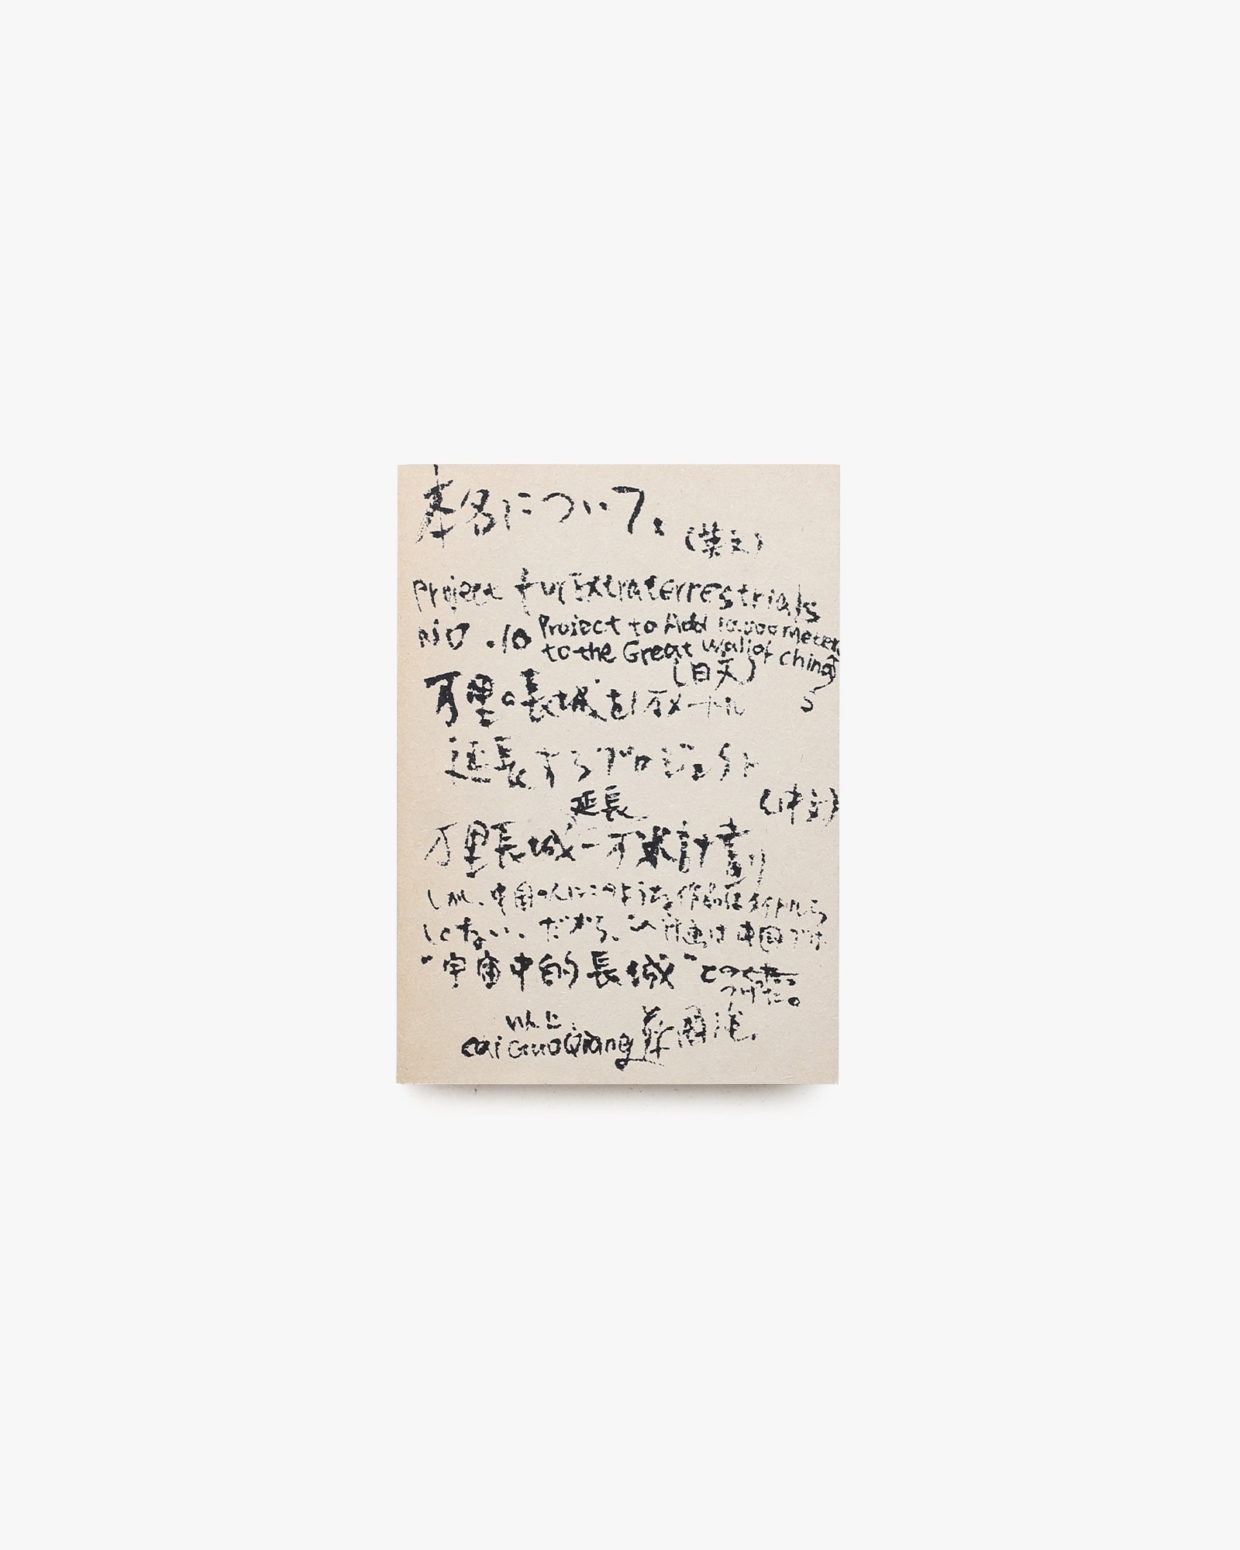 本名について。
(英文)
Project fur Extraterrestrials
NO .10 Project to Add 10.000 meters
to the Great Wall of China
(日文)
万里の長城を1万メートル
延長するプロジェクト
延長
(中文)
万里長城一万米計劃
しかし、中国の人にこのような作品は
しない、だから、この計画は中国では
"宇宙中的長城"と
つけた。
以上
Cai GuoQiang 蔡國強